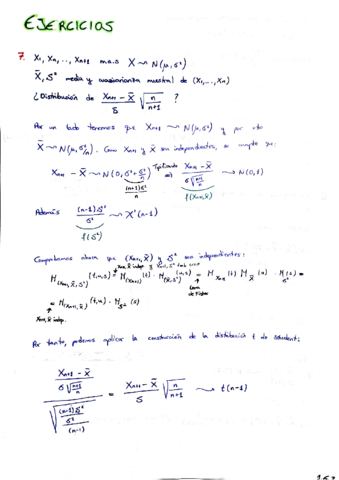 EJERCICIOS
7. X₁, X₂, ..., Xₙ₊₁ m.a.s X ⤳ N(μ, σ²)
X̄, S² media y cuasivarianza muestral de (X₁, ..., Xₙ)
¿Distribución de (Xₙ₊₁ − X̄)/S √(n/(n+1)) ?
Por un lado tenemos que Xₙ₊₁ ⤳ N(μ, σ²) y por otro
X̄ ⤳ N(μ, σ²/n). Como Xₙ₊₁ y X̄ son independientes, se cumple que:
Xₙ₊₁ − X̄ ⤳ N(0, σ² + σ²/n) Tipificando ⇒ (Xₙ₊₁ − X̄)/(σ√((n+1)/n)) ⤳ N(0,1)
(n+1)σ²/n f(Xₙ₊₁, X̄)
Además (n−1)S²/σ² ⤳ χ²(n−1)
f(S²)
Comprobamos ahora que (Xₙ₊₁, X̄) y S² son independientes:
Xₙ₊₁, X̄ indep y Xₙ₊₁, S²
M(Xₙ₊₁, X̄, S²) (t,u,s) = M(Xₙ₊₁) (t) · M(X̄, S²) (u,s) = M Xₙ₊₁ (t) M X̄ (u) · M S² (s) =
Lema de Fisher
= M(Xₙ₊₁, X̄) (t,u) · M S² (s)
Xₙ₊₁, X̄ indep.
Por tanto, podemos aplicar la construcción de la distribución t de Student:
((Xₙ₊₁ − X̄)/(σ√((n+1)/n))) / √(((n−1)S²/σ²)/(n−1)) = (Xₙ₊₁ − X̄)/S √(n/(n+1)) ⤳ t(n−1)